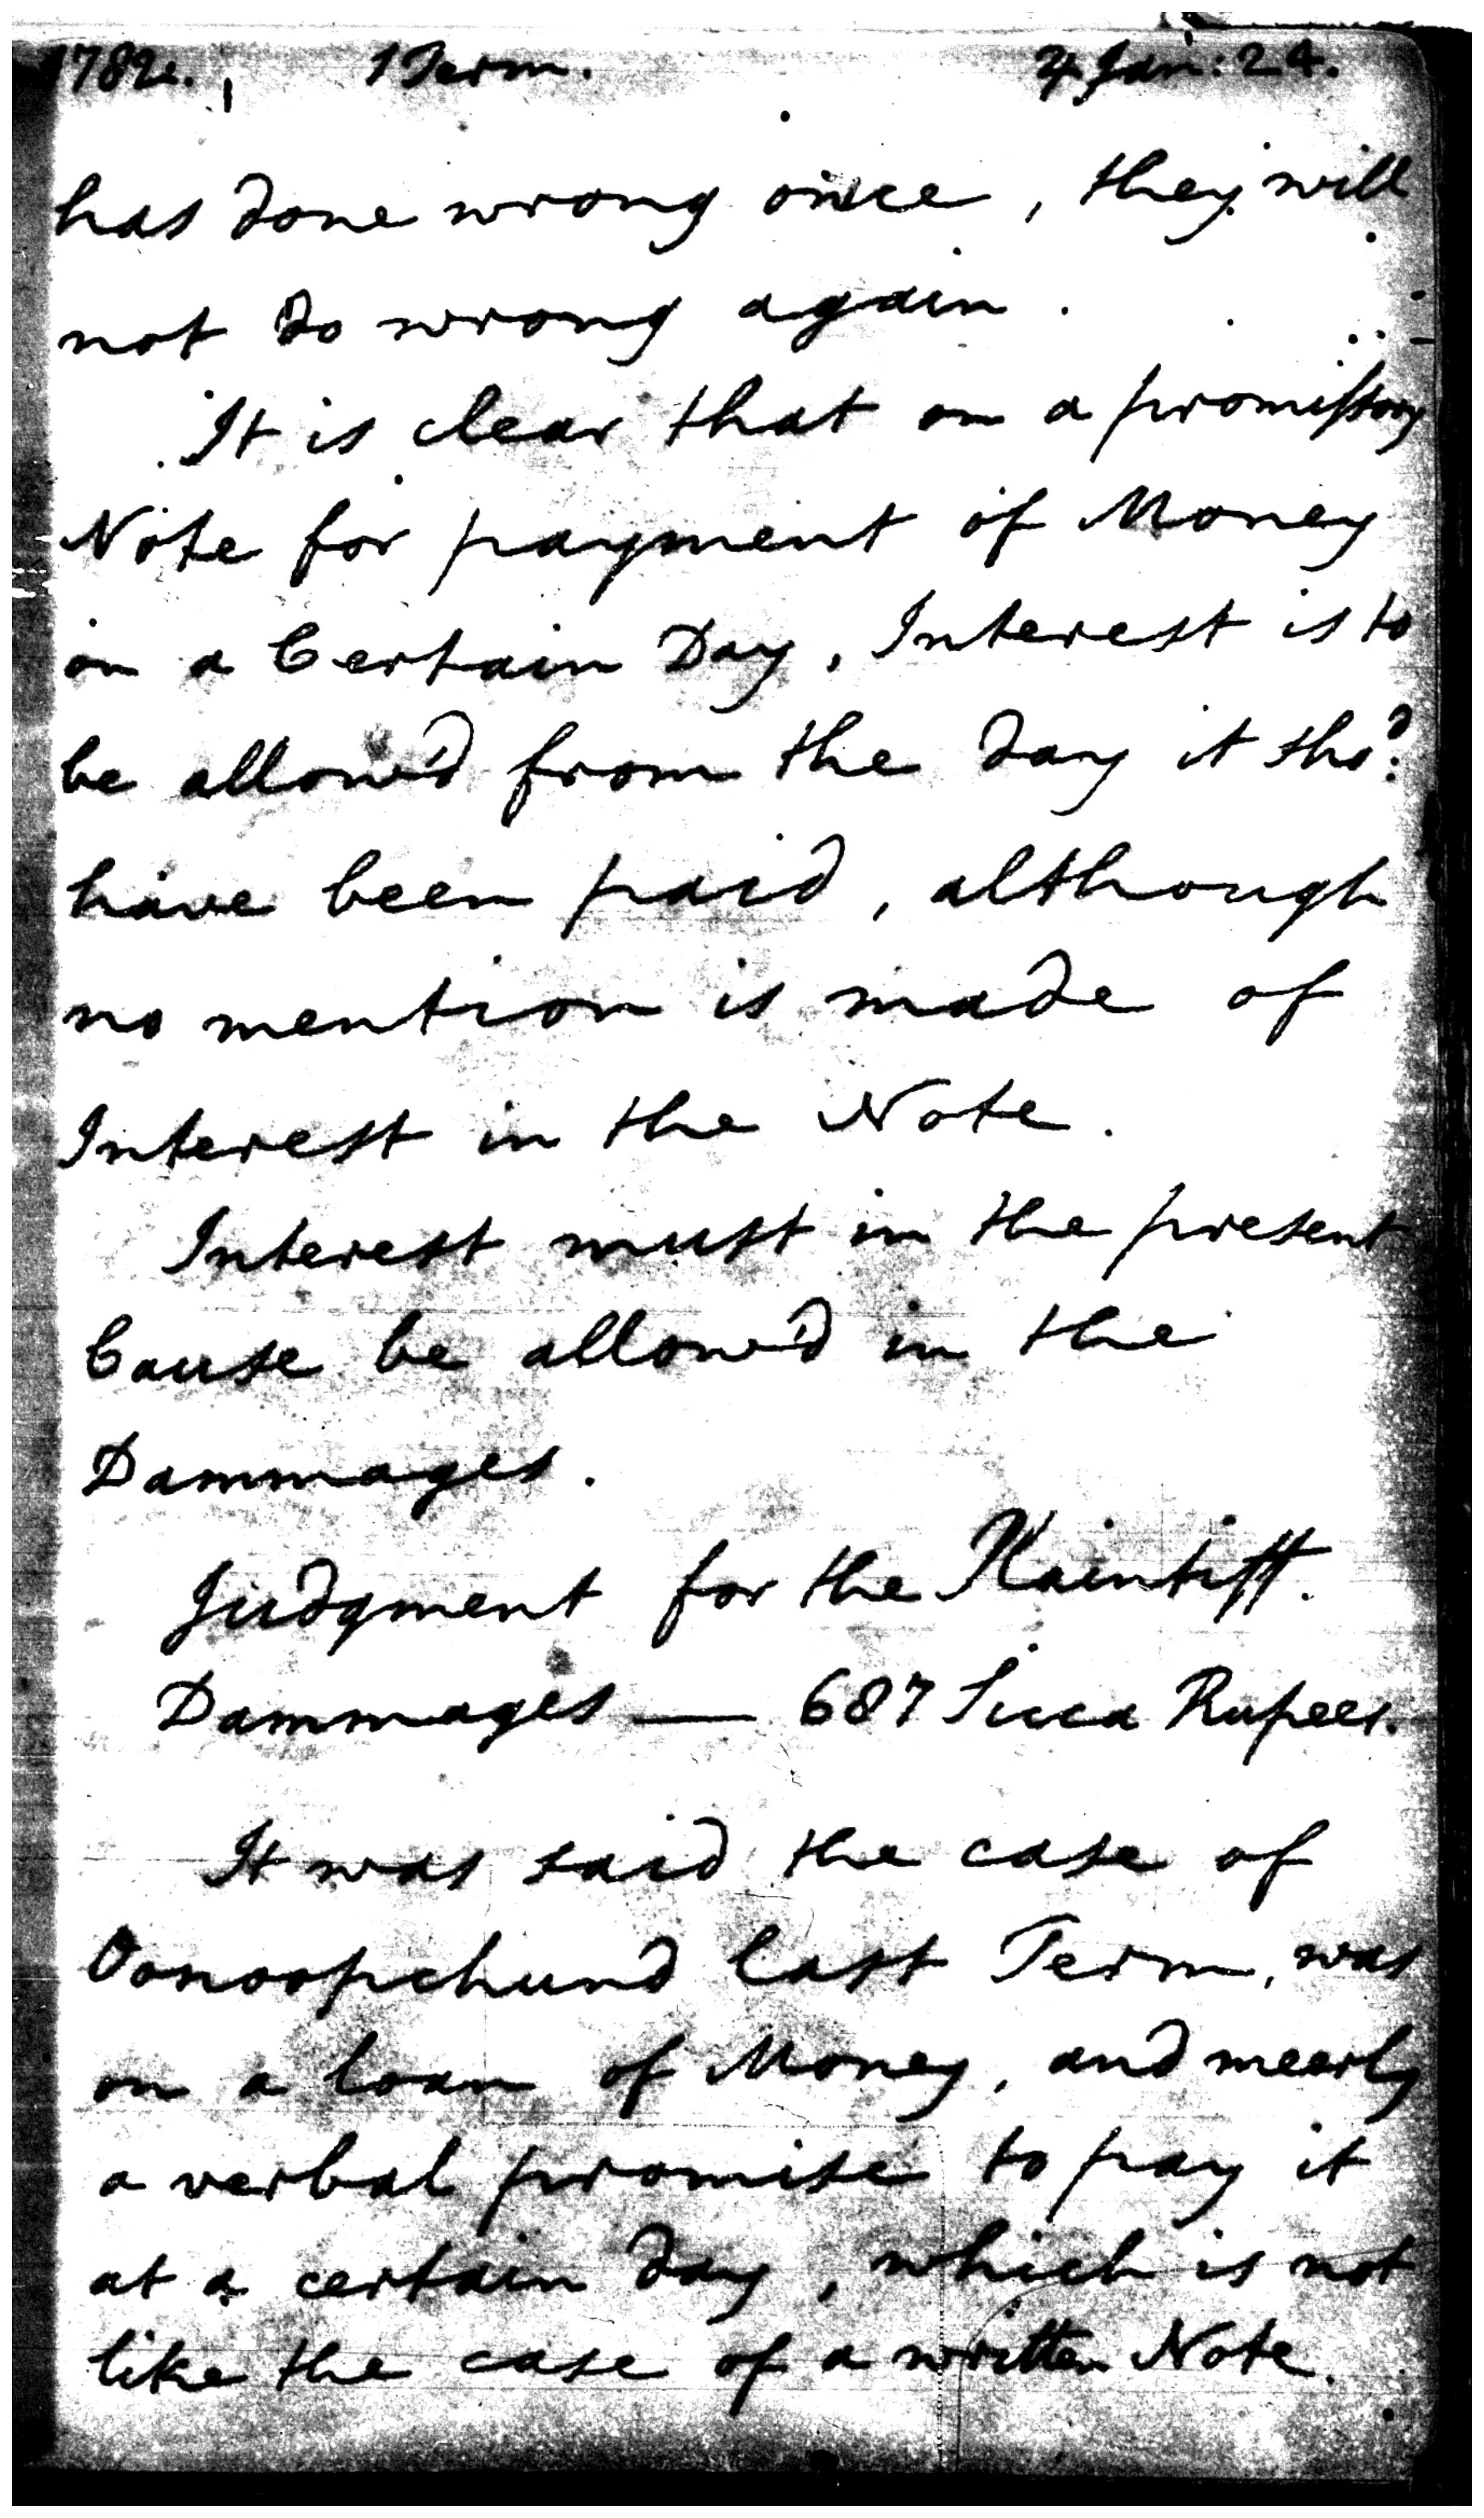 1782. 1 Term. ♃ Jan: 24.
has done wrong once, they will
not do wrong again.
It is clear that on a promissory
Note for payment of Money
on a Certain Day, Interest is to
be allow'd from the day it sho.d
have been paid, although
no mention is made of
Interest in the Note.
Interest must in the present
Cause be allow'd in the
Dammages.
Judgment for the Plaintiff.
Dammages — 687 Sicca Rupees.
It was said the case of
Oonoopchund last Term, was
on a loan of Money, and meerly
a verbal promise to pay it
at a certain day, which is not
like the case of a written Note.